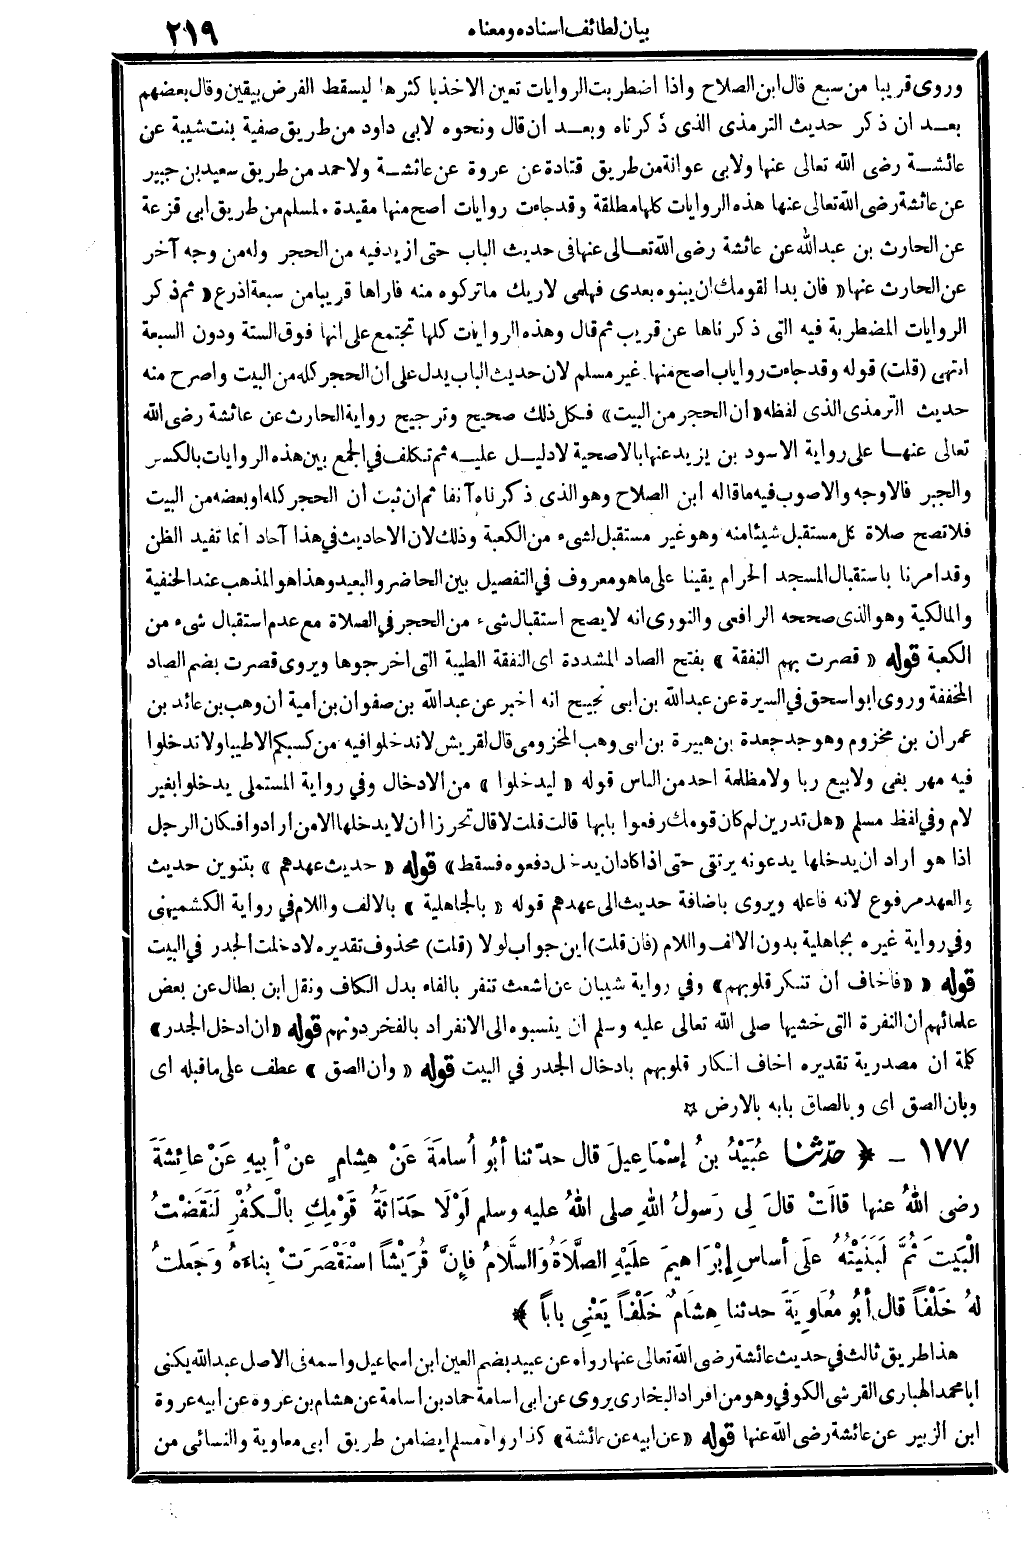 بيان لطائف اسناده ومعناه
٢١٩
وروى قريبا من سبع قال ابن الصلاح واذا اضطربت الروايات تعين الاخذ باكثرها ليسقط الفرض بيقين وقال بعضهم
بعد ان ذكر حديث الترمذى الذى ذكرناه وبعد ان قال ونحوه لابى داود من طريق صفية بنت شيبة عن
عائشة رضى الله تعالى عنها ولابى عوانة من طريق قتادة عن عروة عن عائشة ولاحمد من طريق سعيد بن جبير
عن عائشة رضى الله تعالى عنها هذه الروايات كلها مطلقة وقد جاءت روايات اصح منها مقيدة . لمسلم من طريق ابى قزعة
عن الحارث بن عبدالله عن عائشة رضى الله تعالى عنها فى حديث الباب حتى ازيد فيه من الحجر وله من وجه آخر
عن الحارث عنها « فان بدا لقومك ان يبنوه بعدى فهلمى لاريك ما تركوه منه فاراها قريبا من سبعة اذرع » ثم ذكر
الروايات المضطربة فيه التى ذكرناها عن قريب ثم قال وهذه الروايات كلها تجتمع على انها فوق الستة ودون السبعة
انتهى (قلت) قوله وقد جاءت روايات اصح منها غير مسلم لان حديث الباب يدل على ان الحجر كله من البيت واصرح منه
حديث الترمذى الذى لفظه «ان الحجر من البيت» فكل ذلك صحيح وترجيح رواية الحارث عن عائشة رضى الله
تعالى عنها على رواية الاسود بن يزيد عنها بالاصحية لا دليل عليه ثم تكلف فى الجمع بين هذه الروايات بالكسر
والجبر فالاوجه والاصوب فيه ما قاله ابن الصلاح وهو الذى ذكرناه آنفا ثم ان ثبت ان الحجر كله او بعضه من البيت
فلا تصح صلاة كل مستقبل شيئا منه وهو غير مستقبل لشىء من الكعبة وذلك لان الاحاديث فى هذا آحاد انما تفيد الظن
وقد امرنا باستقبال المسجد الحرام يقينا على ما هو معروف فى التفصيل بين الحاضر والبعيد وهذا هو المذهب عند الحنفية
والمالكية وهو الذى صححه الرافعى والنووى انه لا يصح استقبال شىء من الحجر فى الصلاة مع عدم استقبال شىء من
الكعبة قوله « قصرت بهم النفقة » بفتح الصاد المشددة اى النفقة الطيبة التى اخرجوها ويروى قصرت بضم الصاد
المخففة وروى ابو اسحق فى السيرة عن عبدالله بن ابى نجيح انه اخبر عن عبدالله بن صفوان بن امية ان وهب بن عائد بن
عمران بن مخزوم وهو جد جعدة بن هبيرة بن ابى وهب المخزومى قال لقريش لا تدخلوا فيه من كسبكم الا طيبا ولا تدخلوا
فيه مهر بغى ولا بيع ربا ولا مظلمة احد من الناس قوله « ليدخلوا » من الادخال وفي رواية المستملى يدخلوا بغير
لام وفى لفظ مسلم «هل تدرين لم كان قومك رفعوا بابها قالت قلت لا قال تحرزا ان لا يدخلها الا من ارادوا فكان الرجل
اذا هو اراد ان يدخلها يدعونه يرتقى حتى اذا كاد ان يدخل دفعوه فسقط» قوله « حديث عهدهم » بتنوين حديث
والعهد مرفوع لانه فاعله ويروى باضافة حديث الى عهدهم قوله « بالجاهلية » بالالف واللام في رواية الكشميهنى
وفى رواية غيره بجاهلية بدون الالف واللام (فان قلت) اين جواب لولا (قلت) محذوف تقديره لادخلت الجدر فى البيت
قوله « «فأخاف ان تنكر قلوبهم» وفي رواية شيبان عن اشعث تنفر بالفاء بدل الكاف ونقل ابن بطال عن بعض
علمائهم ان النفرة التى خشيها صلى الله تعالى عليه وسلم ان ينسبوه الى الانفراد بالفخر دونهم قوله «ان ادخل الجدر»
كلمة ان مصدرية تقديره اخاف انكار قلوبهم بادخال الجدر في البيت قوله « وان الصق » عطف على ما قبله اى
وبان الصق اى وبالصاق بابه بالارض ✩
١٧٧ ـ ﴿ حدّثنا عُبَيْدُ بنُ إسْمَاعِيلَ قال حدّثنا أبُو أُسامَةَ عَنْ هِشامٍ عنْ أبِيهِ عَنْ عائِشَةَ
رضى اللهُ عنها قالَتْ قالَ لِى رَسولُ اللهِ صلى اللهُ عليه وسلم لَوْلَا حَدَاثَةُ قَوْمِكِ بالْكُفْرِ لَنَقَضْتُ
الْبَيْتَ ثُمَّ لَبَنَيْتُهُ عَلَى أساسِ إبْرَاهِيمَ عَلَيْهِ الصَّلَاةُ وَالسَّلَامُ فإنَّ قُرَيْشاً اسْتَقْصَرَتْ بِناءَهُ وَجَعَلْتُ
لهُ خَلْفاً قال أبُو مُعَاوِيَةَ حدثنا هِشامٌ خَلْفاً يَعْنِى باباً ﴾
هذا طريق ثالث فى حديث عائشة رضى الله تعالى عنها رواه عن عبيد بضم العين ابن اسماعيل واسمه فى الاصل عبدالله يكنى
ابا محمد الهبارى القرشى الكوفى وهو من افراد البخارى يروى عن ابى اسامة حماد بن اسامة عن هشام بن عروة عن ابيه عروة
ابن الزبير عن عائشة رضى الله عنها قوله «عن ابيه عن عائشة» كذا رواه مسلم ايضا من طريق ابى معاوية والنسائى من